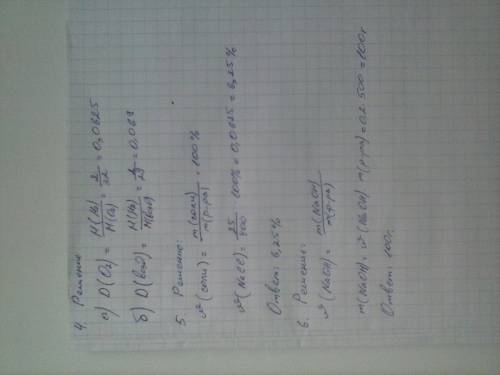 4. Решение
а) D(O₂) = M(H₂)/M(O₂) = 2/32 = 0,0625
б) D(возд) = M(H₂)/M(возд) = 2/29 = 0,069
5. Решение:
ω(соли) = m(соли)/m(р-ра) · 100%
ω(NaCl) = 25/400 · 100% = 0,0625 = 6,25%
Ответ: 6,25%
6. Решение:
ω(NaOH) = m(NaOH)/m(р-ра)
m(NaOH) = ω(NaOH) · m(р-ра) = 0,2 · 500 = 100г.
Ответ: 100г.